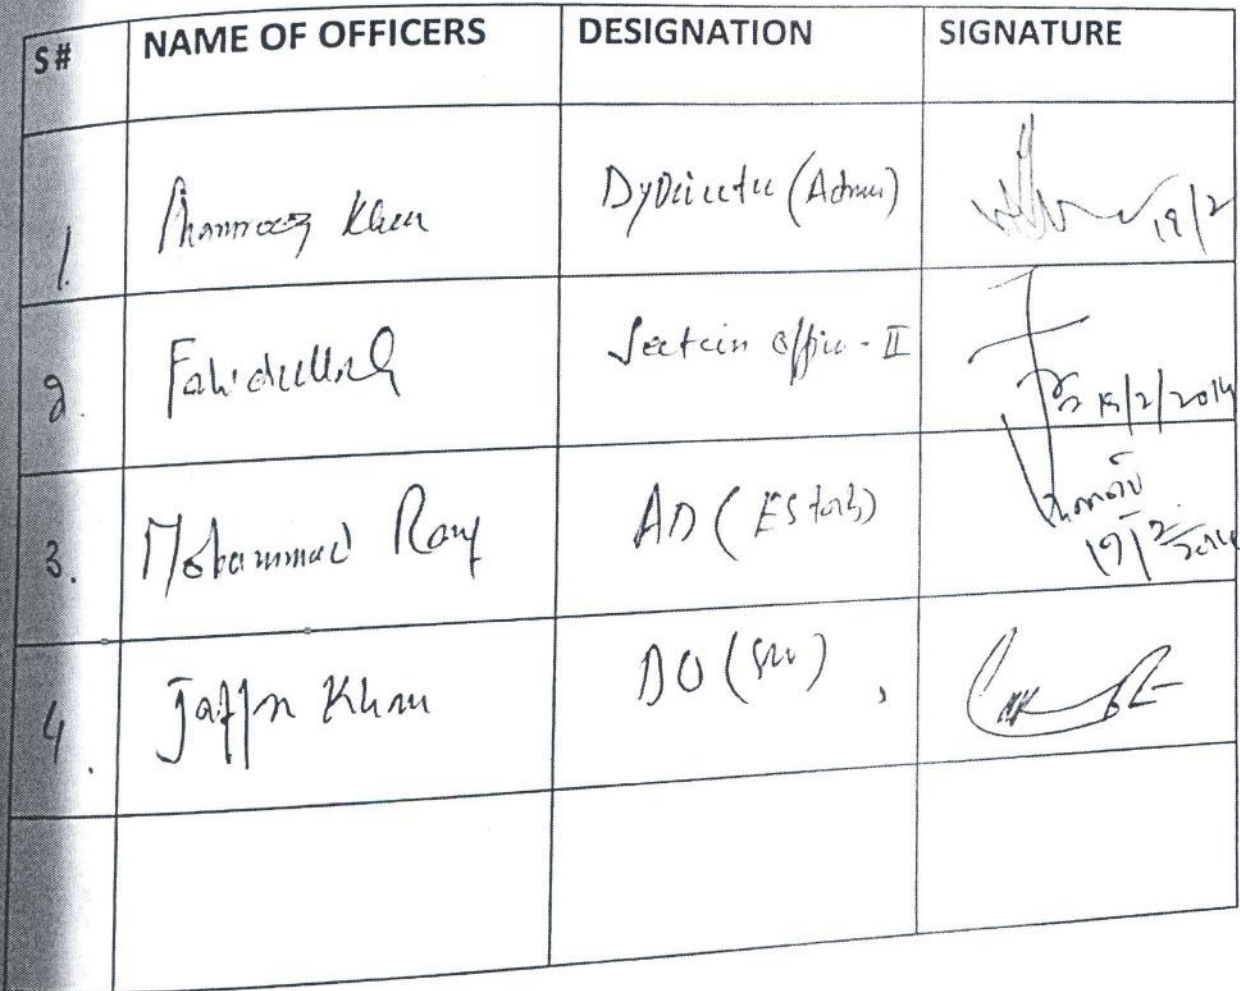 S# NAME OF OFFICERS DESIGNATION SIGNATURE
1. Khan DyDirector (Admn) 19/2
2. Fahidullah Section Officer - II 19/2/2014
3. Mohammad Rauf AD (Estab) 19/2/2014
4. Jaffar Khan DO ( )